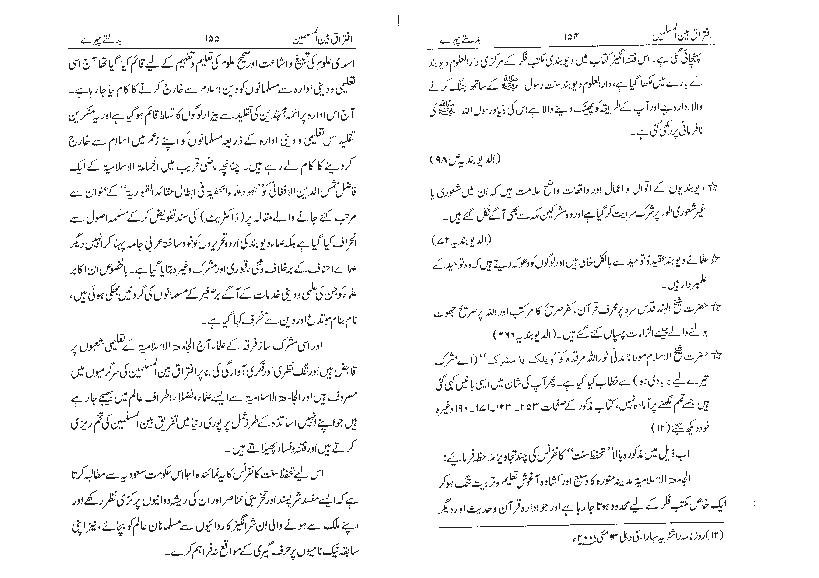 افتراق بین المسلمین ۱۵۴ بدلتے چہرے
پہنچائی گئی ہے۔ اس فتنہ انگیز کتاب میں دیوبندی مکتب فکر کے مرکزی دارالعلوم دیوبند
کے بارے میں لکھا گیا ہے، دارالعلوم دیوبند سنت رسول ﷺ کے ساتھ جنگ کرنے
والا ادارہ ہے اور آپ کے طریقہ کو پھینک دینے والا ہے اس کی بنیاد رسول اللہ ﷺ کی
نافرمانی پر رکھی گئی ہے۔
(الدیوبندیہ ص ۹۸)
☆ دیوبندیوں کے اقوال و اعمال اور واقعات واضح علامت ہیں کہ ان میں شعوری یا
غیر شعوری طور پر شرک سرایت کر گیا ہے اور وہ مشرکین مکہ سے بھی آگے نکل گئے ہیں۔
(الدیوبندیہ ۷۲)
☆ علمائے دیوبند عقیدۂ توحید سے بالکل خالی ہیں اور لوگوں کو دھوکہ دیتے ہیں کہ وہ توحید کے
علمبردار ہیں۔
☆ حضرت شیخ الہند قدس سرہ پر محرف قرآن، کفر صریح کا مرتکب اور اللہ پر صریح جھوٹ
بولنے والے جیسے الزامات چسپاں کئے گئے ہیں۔ (الدیوبندیہ ۲۶۶)
☆ حضرت شیخ الاسلام مولانا مدنی نور اللہ مرقدہ کو "ویلک یا مشرک" (اے مشرک
تیرے لیے بربادی ہو) سے خطاب کیا گیا ہے۔ پھر آپ کی شان میں ایسی باتیں کہی گئی
ہیں جسے قلم لکھنے پر آمادہ نہیں، کتاب مذکور کے صفحات ۲۵۳۔ ۱۴۳۔ ۱۷۱۔ ۱۹۰ وغیرہ
خود دیکھ لیجئے (۱۲)
اب ذیل میں مذکورہ بالا "تحفظ سنت" کانفرنس کی چند تجاویز ملاحظہ فرمائیے:
الجامعۃ الاسلامیۃ مدینہ منورہ کا وسیع اور کشادہ آغوش تعلیم و تربیت تنگ ہو کر
ایک خاص مکتب فکر کے لیے محدود ہوتا جا رہا ہے اور جو ادارہ قرآن و حدیث اور دیگر
(۱۲) روزنامہ راشٹریہ سہارا، نئی دہلی ۳ مئی ۲۰۰۱ء
افتراق بین المسلمین ۱۵۵ بدلتے چہرے
اسلامی علوم کی تبلیغ و اشاعت اور صحیح علوم کی تعلیم و تفہیم کے لیے قائم کیا گیا تھا آج اسی
تعلیمی و دینی ادارہ سے مسلمانوں کو دین اسلام سے خارج کرنے کا کام لیا جا رہا ہے۔
آج اس ادارہ پر ائمہ مجتہدین کی تقلید سے بیزار لوگوں کا تسلط قائم ہو گیا ہے اور یہ منکرین
تقلید اس تعلیمی و دینی ادارہ کے ذریعہ مسلمانوں کو اپنے زعم میں اسلام سے خارج
کر دینے کا کام لے رہے ہیں۔ چنانچہ ماضی قریب میں الجامعۃ الاسلامیۃ کے ایک
فاضل شمس الدین الافغانی کو "جہود علماء الحنفیۃ فی ابطال عقائد القبوریۃ" کے عنوان سے
مرتب کئے جانے والے مقالہ پر (ڈاکٹریٹ) کی سند تفویض کر کے مسلمہ اصول سے
انحراف کیا گیا ہے بلکہ علماء دیوبند کی اردو تحریروں کو خود ساختہ عربی جامہ پہنا کر انہیں دیگر
علماء احناف کے برخلاف وثنی، قبوری اور مشرک وغیرہ بتایا گیا ہے۔ بالخصوص ان اکابر
علماء کو جن کی علمی و دینی خدمات کے آگے برصغیر کے مسلمانوں کی گردنیں جھکی ہوئی ہیں،
نام بنام مبتدع اور دین سے منحرف کہا گیا ہے۔
اور اسی مشرک ساز فرقہ کے علماء آج الجامعۃ الاسلامیۃ کے تعلیمی شعبوں پر
قابض ہیں اور تنگ نظری اور فکری آوارگی کی بنا پر افتراق بین المسلمین کی سرگرمیوں میں
مصروف ہیں اور الجامعۃ الاسلامیۃ سے ایسے علماء و فضلاء اطراف عالم میں بھیجے جا رہے
ہیں جو اپنے انہیں اساتذہ کے طرز عمل پر پوری دنیا میں تفریق بین المسلمین کی تخم ریزی
کرتے ہیں اور فتنہ و فساد پھیلاتے ہیں۔
اس لیے تحفظ سنت کانفرنس کا یہ نمائندہ اجلاس حکومت سعودیہ سے مطالبہ کرتا
ہے کہ ایسے مفسد، شر پسند اور تخریبی عناصر اور ان کی ریشہ دوانیوں پر کڑی نظر رکھے اور
اپنے ملک سے ہونے والی ان شر انگیز کاروائیوں سے مسلمانان عالم کو بچائے، نیز اپنی
سابقہ نیک نامیوں پر حرف گیری کے مواقع نہ فراہم کرے۔